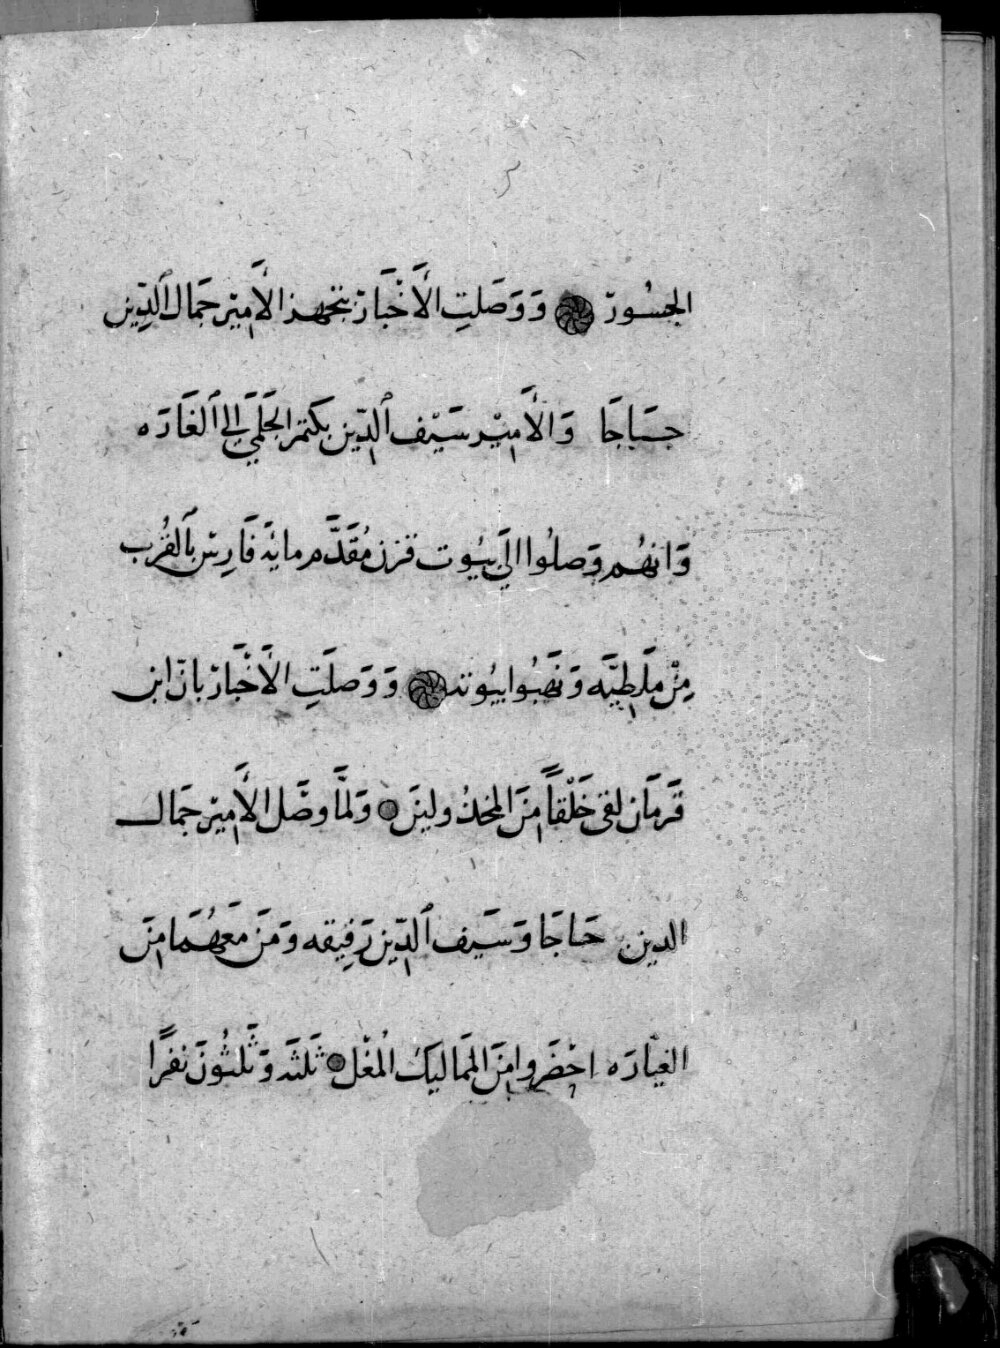 الجسُور وَوَصَلتِ الأَخْبَار بتجهيز الأَمير جَمَال ٱلدِّين
حسَاجَا وَالأَمِيْر سَيْف ٱلدِّين بكتمر الجَلَمِي إلى ٱلغَارَه
وَانهُم وَصلُوا إلىَ بيُوت قزن مُقَدَّم مائة فَارِس بٱلقُرب
مِنْ مَلَطِيَّه وَنَهَبُوا بيُوته وَوَصلَتِ الأَخْبَار بان ابن
قَرَمَان لقى خَلْقاً منَ المخذُولينَ وَلمَّا وصَل الأَمير جمَال
الدين حَاجَا وَسَيف ٱلدِّين رَفِيقه وَمَن مَعَهُمَا منَ
الغيَّارَه احْضَروا منَ المَماليك المُغْل ثَلثَة وَثَلثُونَ نفرًا